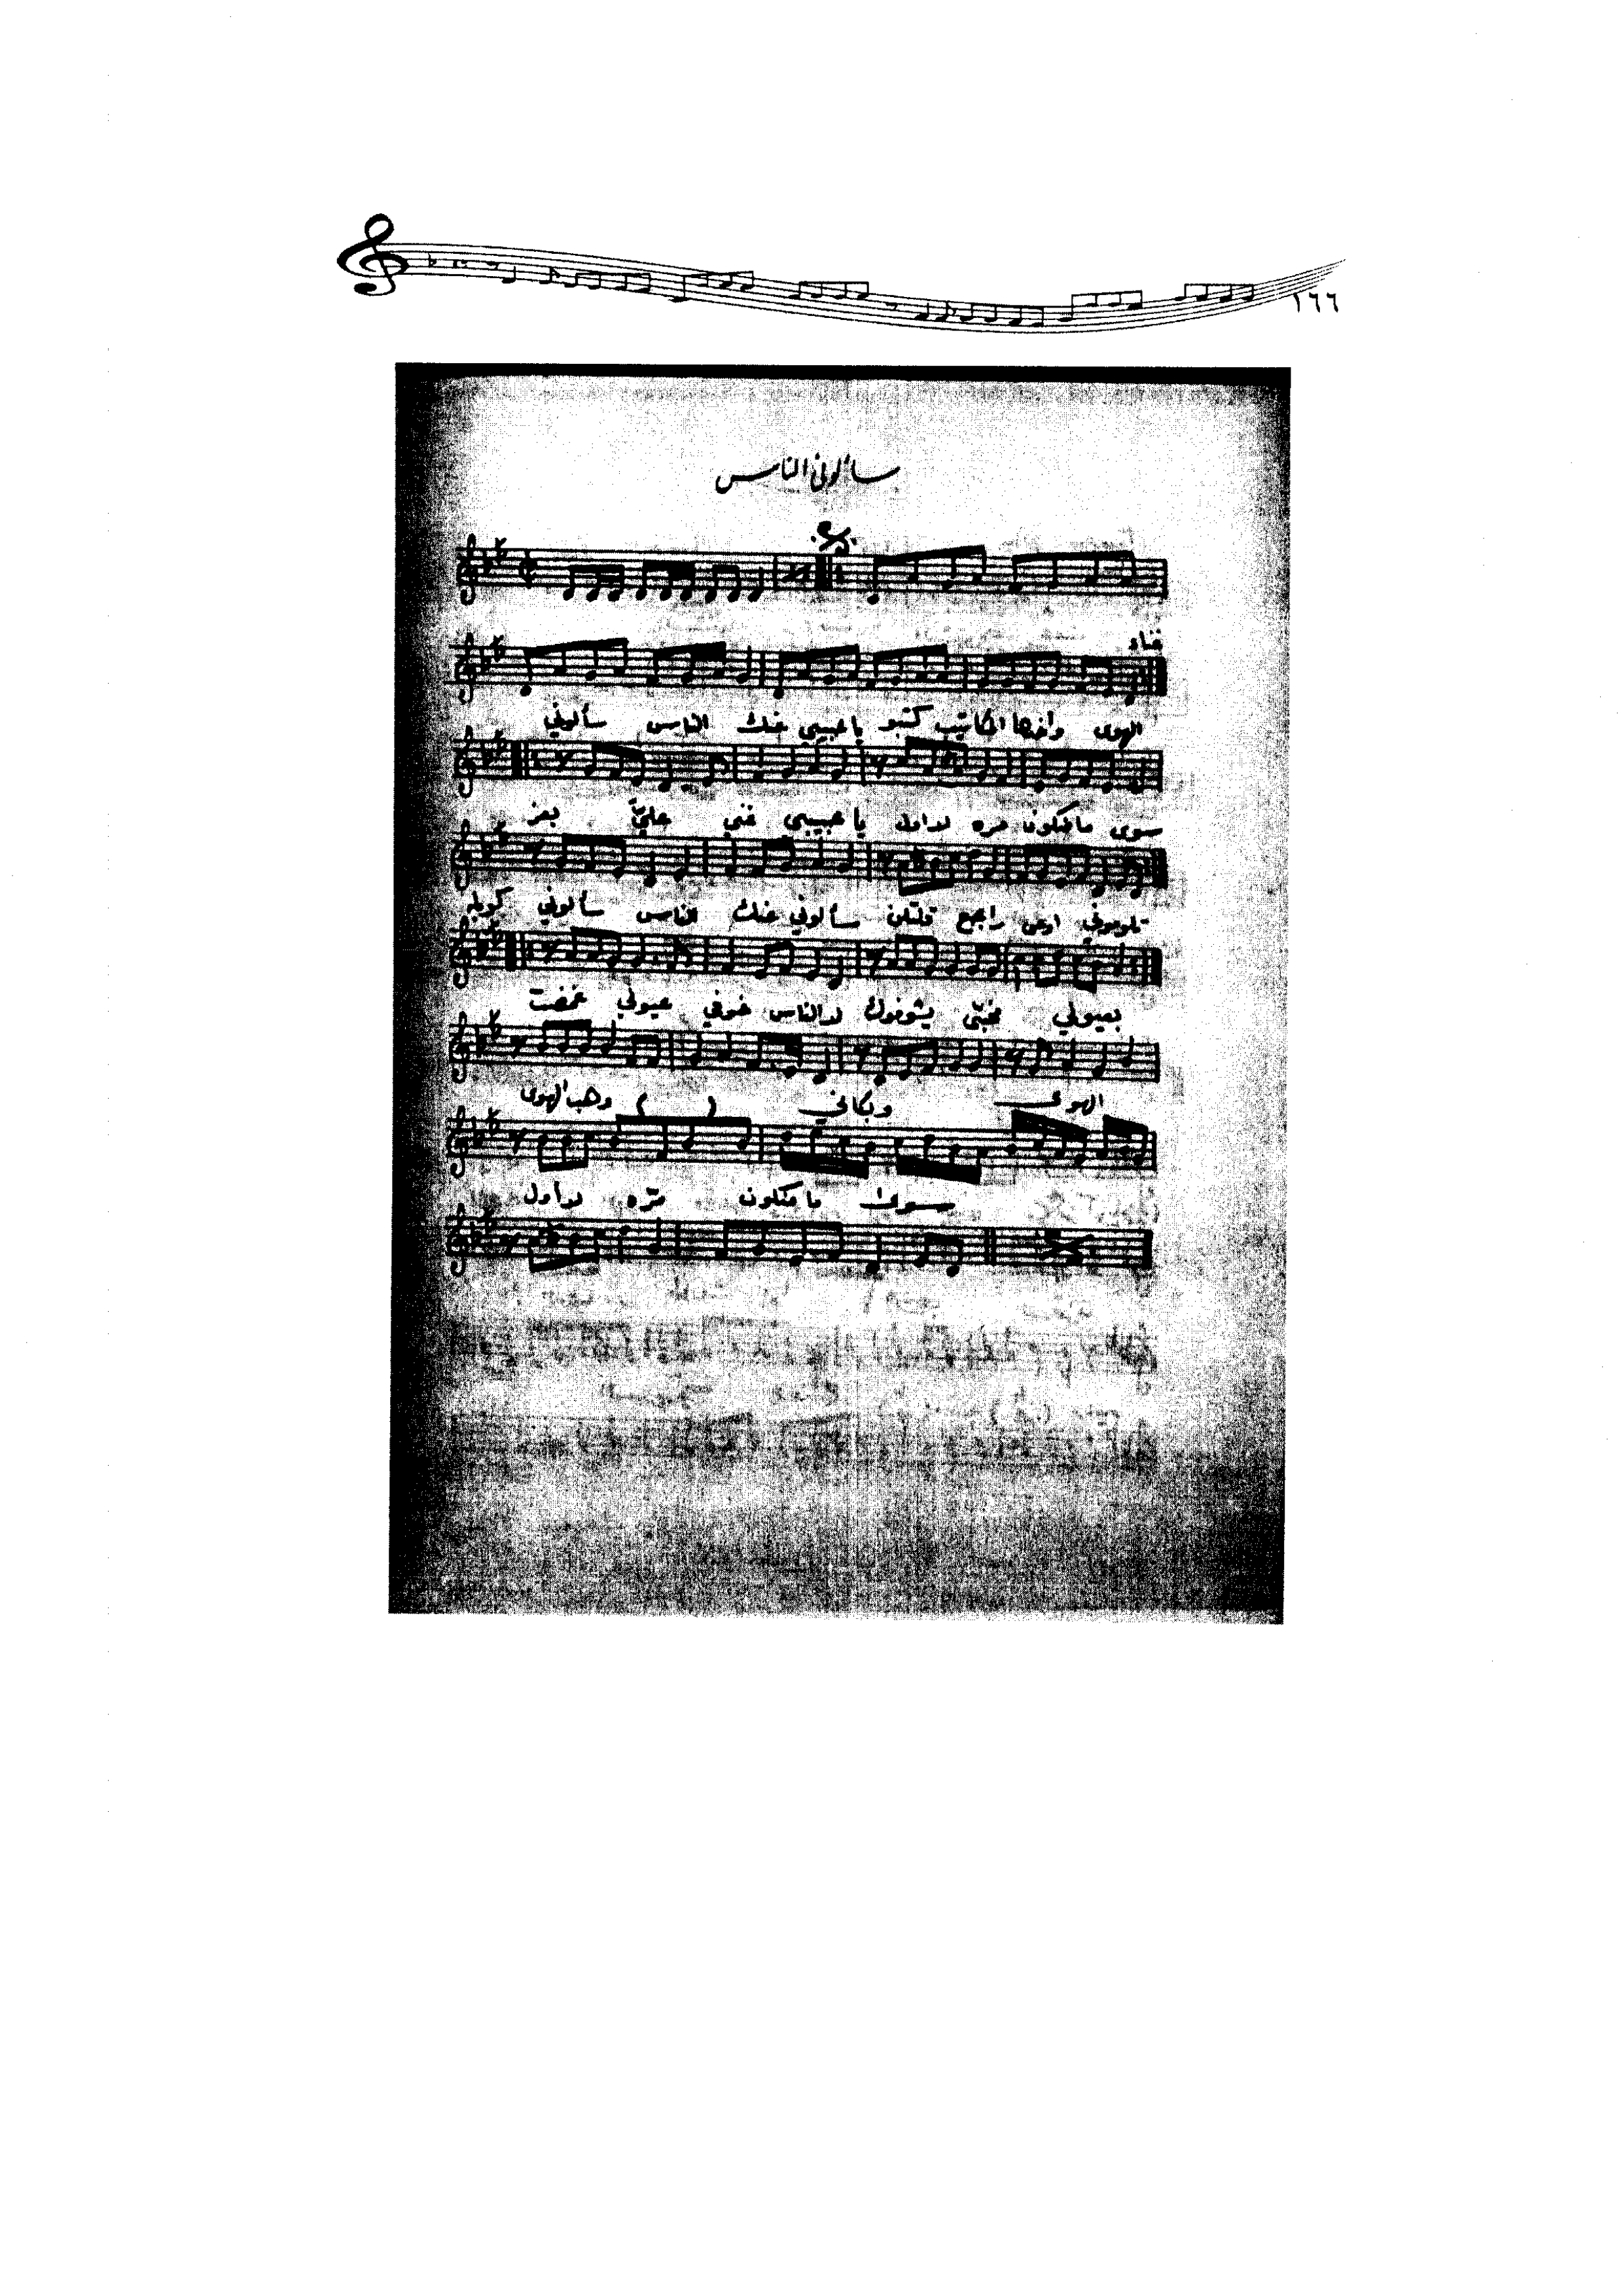 ١٦٦
سألوني الناس
غناء
سألوني الناس عنك يا حبيبي كتبو المكاتيب واخدها الهوى
بعز عليّ غني يا حبيبي لاول مره مامنكون سوى
كوبليه سألوني الناس عنك سألوني قلتلن راجع اوعى تلوموني
غمضت عيوني خوفي لالناس يشوفوك مخبّى بعيوني
وهب الهوى ( ) وبكاني الهوى
لأول مرّه مامنكون سوى